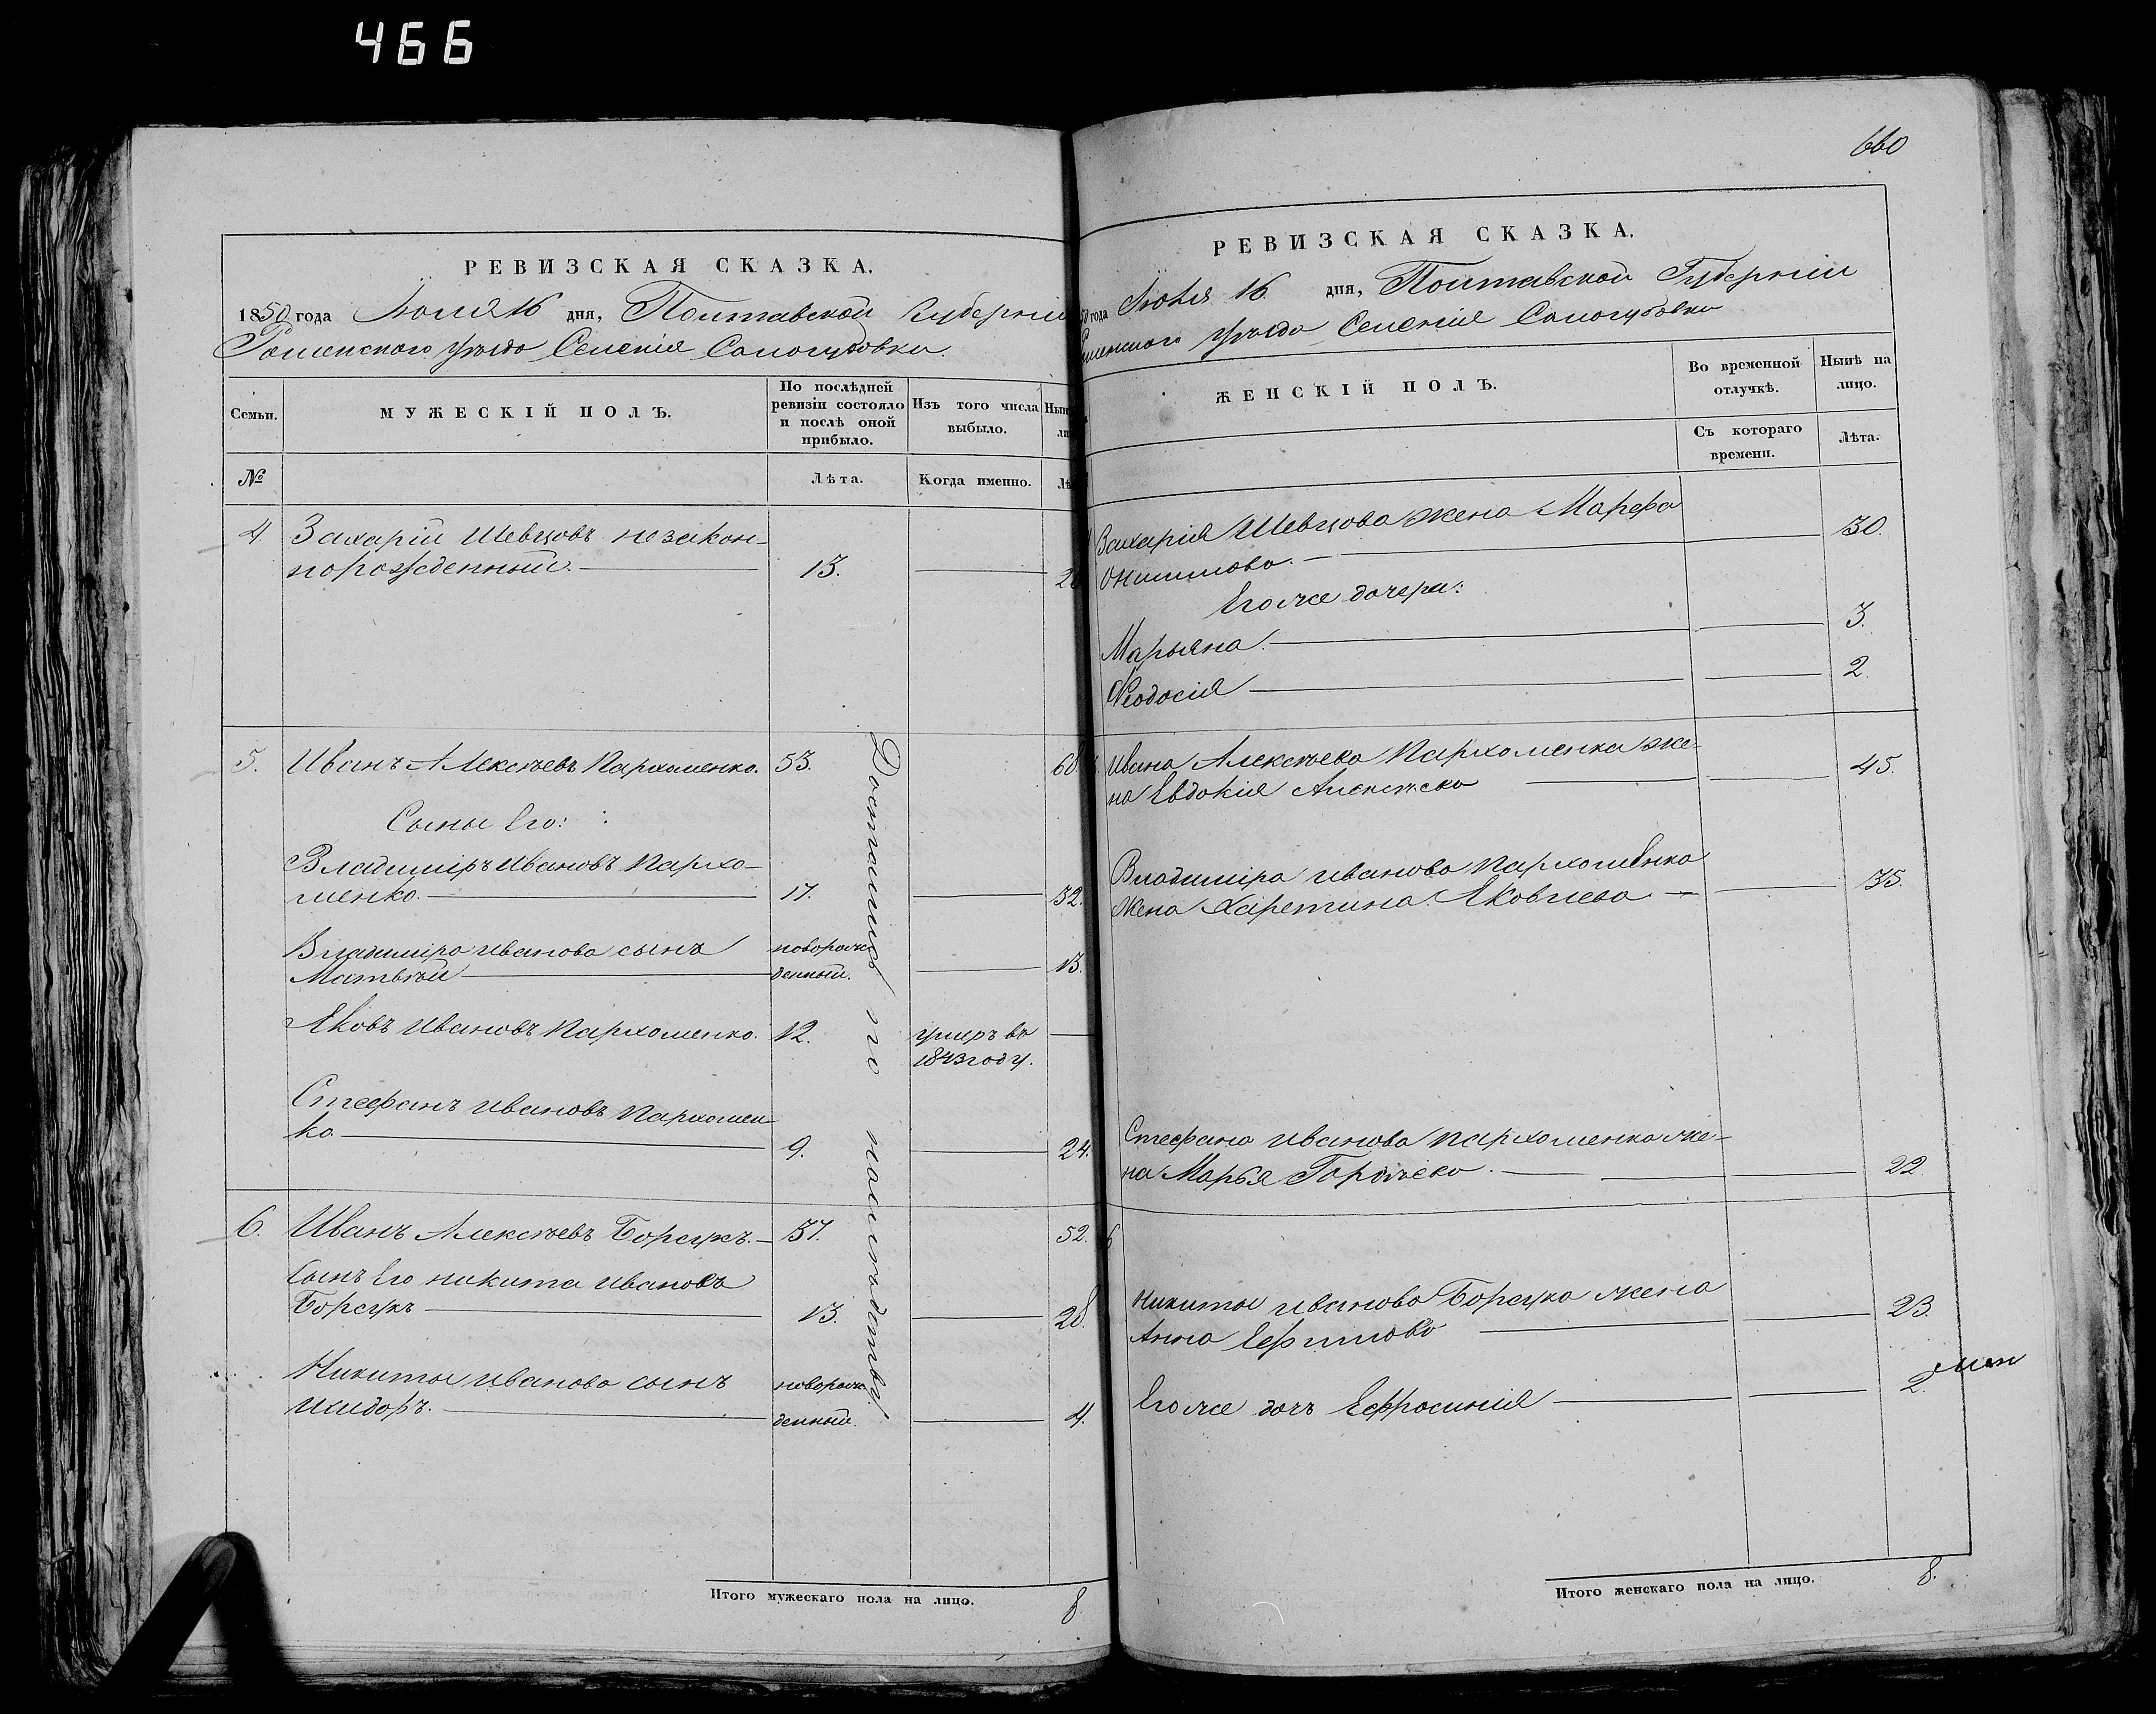 466
РЕВИЗСКАЯ СКАЗКА.
1850 года Июля 16 дня, Полтавской Губерніи
Роменского уѣзда Селенія Сологубовки.
Семьи.
МУЖЕСКІЙ ПОЛЪ.
По послѣдней
ревизіи состояло
и послѣ оной
прибыло.
Изъ того числа
выбыло.
№
Лѣта.
Когда именно.
4. Захарій Шевцовъ незакон-
норожденный. 13.
5. Иванъ Алексѣевъ Пархоменко. 53. 68.
Сыны Его:
Владиміръ Ивановъ Пархо-
менко. 17. 32.
Владиміра Иванова сынъ новорож
Матвѣй денный. 13.
Яковъ Ивановъ Пархоменко. 12. умеръ въ
1843 году.
Стефанъ Ивановъ Пархомен
ко 9. 24.
6. Иванъ Алексѣевъ Борсукъ. 37. 52.
Сынъ Его Никита Ивановъ
Борсукъ 13. 28.
Никиты Иванова сынъ новорож
Исидоръ. денный. 4.
Достались по наслѣдству
Итого мужескаго пола на лицо. 8
660
РЕВИЗСКАЯ СКАЗКА.
года Июля 16 дня, Полтавской Губерніи
уѣзда Селенія Сологубовки
ЖЕНСКІЙ ПОЛЪ.
Во временной
отлучкѣ.
Нынѣ на
лицо.
Съ котораго
времени.
Лѣта.
Захарія Шевцова жена Марфа
30.
Его же дочери:
Марьяна. 3.
Феодосія 2.
Ивана Алексѣева Пархоменка же-
на Евдокія Алексѣева 45.
Владиміра Иванова Пархоменка
жена Харетина Яковлева 35.
Стефана Иванова Пархоменка же-
на Марья Гордѣева. 22
6
Никиты Иванова Борсука жена
Анна Ефимова 23.
Его же дочь Ефросинія 2.
Итого женскаго пола на лицо. 8.